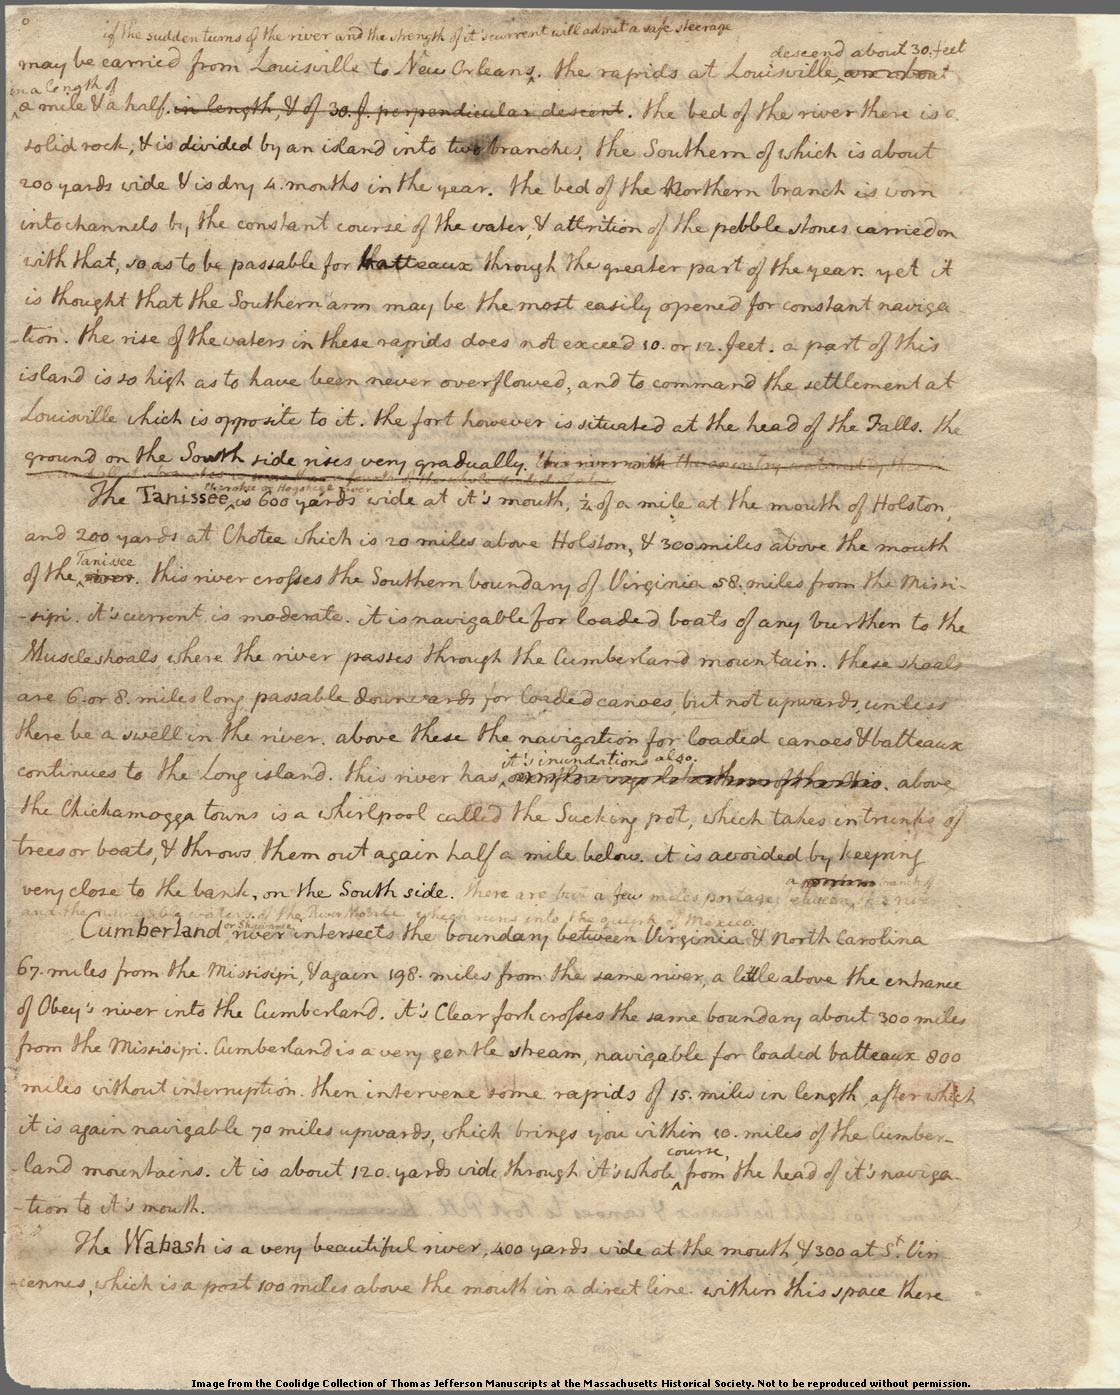 if the sudden turns of the river and the strength of it's current will admit a safe steerage
may be carried from Louisville to New Orleans. the rapids at Louisville descend about 30. feet are about
in a length of
a mile & a half. in length, & of 30. f. perpendicular descent. the bed of the river there is a
solid rock, & is divided by an island into two branches, the Southern of which is about
200 yards wide & is dry 4. months in the year. the bed of the Northern branch is worn
into channels by the constant course of the water, & attrition of the pebble stones carried on
with that, so as to be passable for batteaux through the greater part of the year. yet it
is thought that the Southern arm may be the most easily opened for constant naviga
-tion. the rise of the waters in these rapids does not exceed 10. or 12. feet. a part of this
island is so high as to have been never overflowed, and to command the settlement at
Louisville which is opposite to it. the fort however is situated at the head of the Falls. the
ground on the South side rises very gradually. this river with the country watered by
Cherokee or Hogohege river
The Tanissee, is 600 yards wide at it's mouth, ¼ of a mile at the mouth of Holston,
and 200 yards at Chotee which is 20 miles above Holston, & 300 miles above the mouth
of the Tanissee river. this river crosses the Southern boundary of Virginia 58. miles from the Missi-
-sipi. it's current is moderate. it is navigable for loaded boats of any burthen to the
Muscleshoals, where the river passes through the Cumberland mountain. these shoals
are 6. or 8. miles long, passable downwards for loaded canoes, but not upwards, unless
there be a swell in the river. above these the navigation for loaded canoes & batteaux
continues to the Long island. this river has it's inundations also. above
the Chickamogga towns is a whirlpool called the Sucking pot, which takes in trunks of
trees or boats, & throws them out again half a mile below. it is avoided by keeping
very close to the bank, on the South side. there are but a few miles portage between a branch of this river
and the navigable waters of the river Mobile, which runs into the gulph of Mexico.
Cumberland or Shawanee river intersects the boundary between Virginia & North Carolina
67. miles from the Missisipi, & again 198. miles from the same river, a little above the entrance
of Obey's river into the Cumberland. it's Clear fork crosses the same boundary about 300 miles
from the Missisipi. Cumberland is a very gentle stream, navigable for loaded batteaux 800
miles without interruption. then intervene some rapids of 15. miles in length, after which
it is again navigable 70 miles upwards, which brings you within 10. miles of the Cumber-
-land mountains. it is about 120. yards wide through it's whole course, from the head of it's naviga-
-tion to it's mouth.
The Wabash is a very beautiful river, 400 yards wide at the mouth, & 300 at St. Vin
-cennes, which is a post 100 miles above the mouth in a direct line. within this space there
Image from the Coolidge Collection of Thomas Jefferson Manuscripts at the Massachusetts Historical Society. Not to be reproduced without permission.